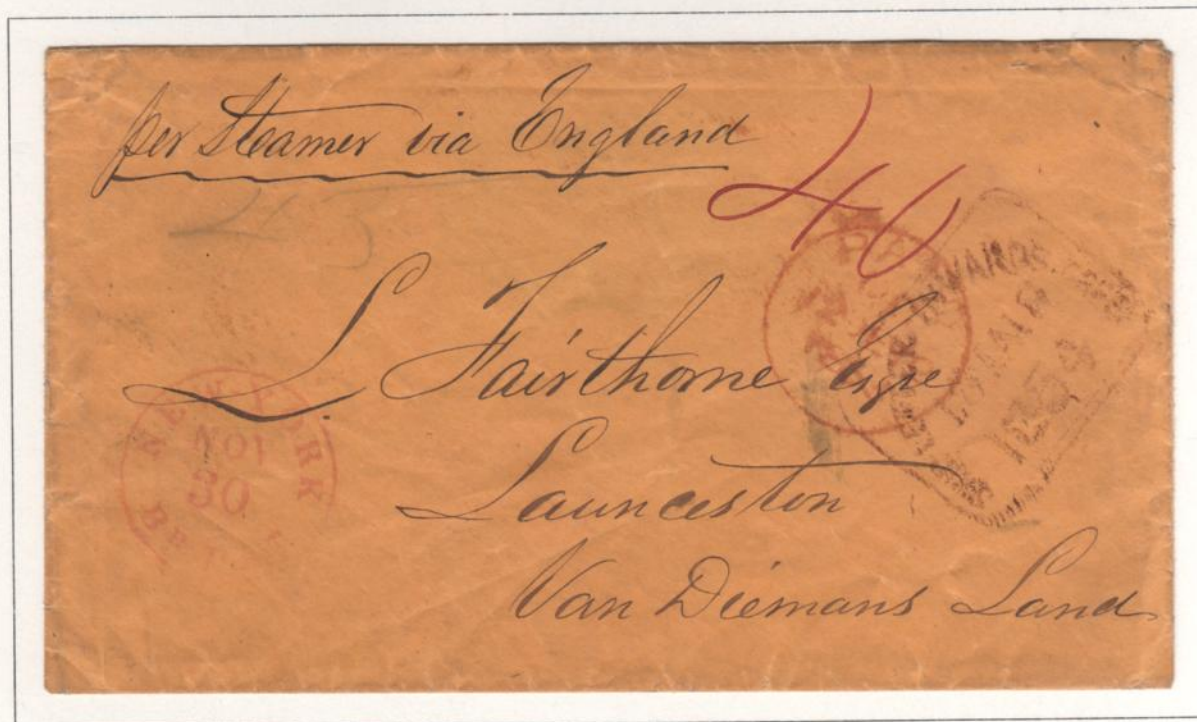 per Steamer via England
46
243
L Fairthorne Esqre
Launceston
Van Diemans Land
NEW YORK
NOV
30
BR
INWARDS
18
1854